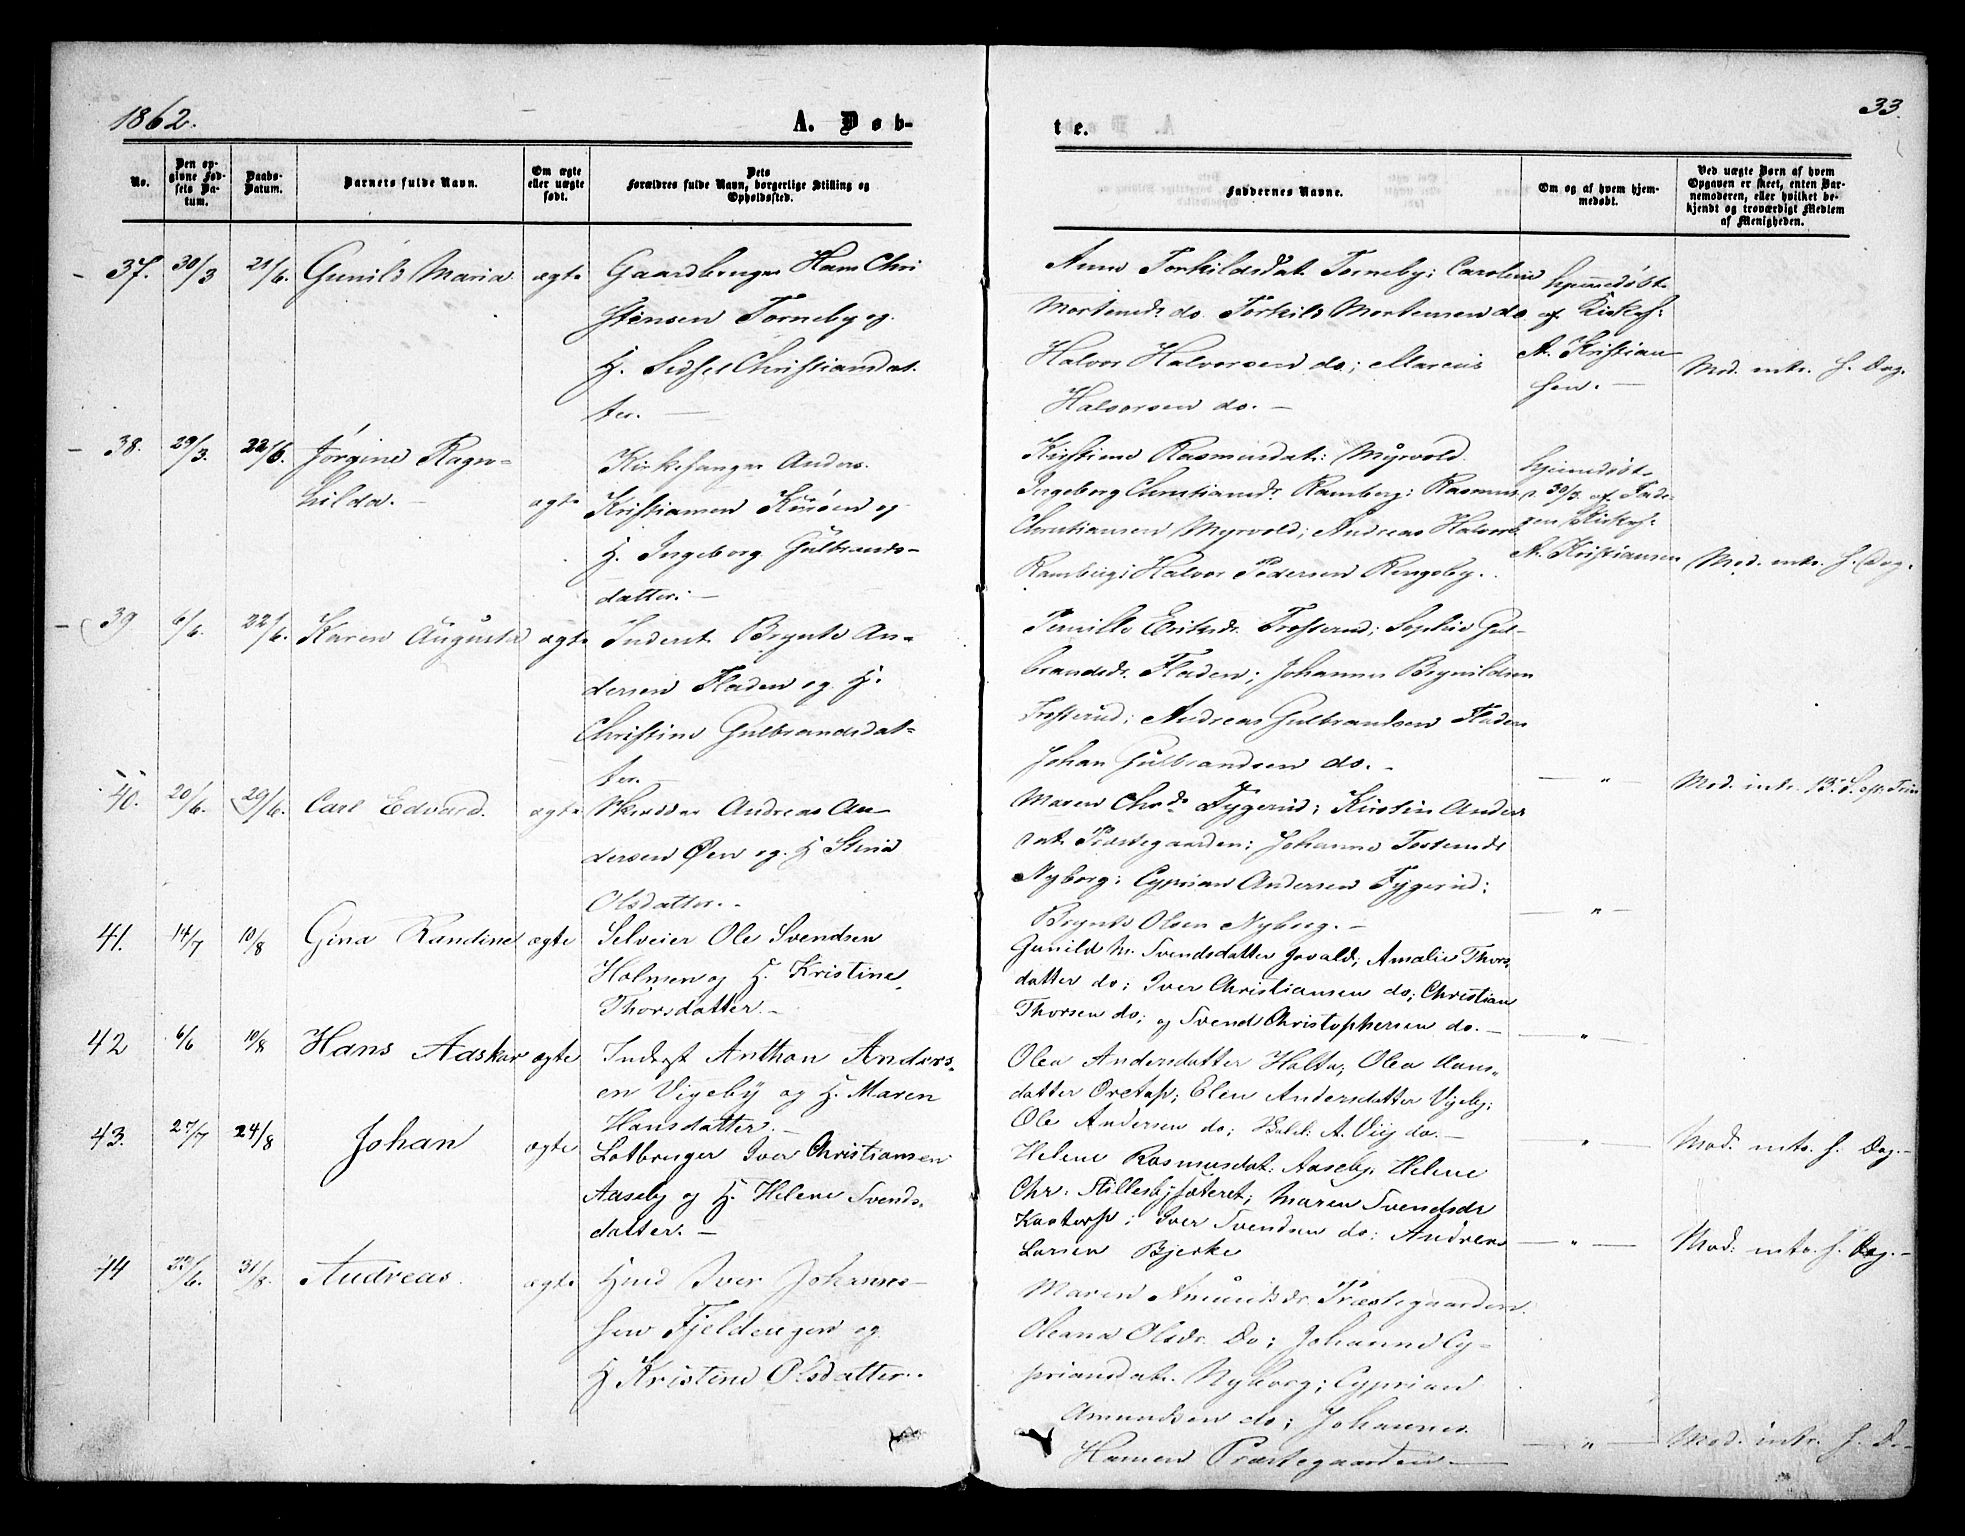 1862.
A. Døb-
te.
33.
No.
Den op-
givne Fød-
sels Da-
tum.
Daabs-
Datum.
Barnets fulde Navn.
Om ægte
eller uægte
født.
Dets
Forældres fulde Navn, borgerlige Stilling og
Opholdssted.
Faddernes Navne.
Om og af hvem hjem-
medøbt.
Ved uægte Børn af hvem
Opgaven er skeet, enten Bar-
nemoderen, eller hvilket be-
kjendt og troværdigt Medlem
af Menigheden.
37. 30/3 21/6. Gunild Maria ægte Gaardbruger Hans Chri
stensen Torneby og
H. Sidsel Christiansdat
ter. —
Anne Torkildsdat. Torneby; Caroline
Mortensdr do. Torkild Mortensen do
Halvor Halvorsen do; Marcus
Halvorsen do. —
hjemmedøbt
af Kirkes:
A. Kristian
sen. —
Mod. intr. s. Dag.
38. 29/3. 22/6. Jørgine Ragn-
hilda. — ægte
Kirkesanger Anders
Kristiansen Kirøen og
H. Ingeborg Gulbrands-
datter: —
Kristiane Rasmusdat: Myrvold
Ingeborg Christiansdr. Ramberg; Rasmus
Christiansen Myrvold; Andreas Halvors.
Ramberg; Halvor Pedersen Ringeby.
hjemmedøbt
d. 30/3. af Fade-
ren Kirkes:
A. Kristiansen
Mod. intr. s. Dag.
39 6/6. 22/6. Karen Augusta ægte Inderst Brynte An-
dersen Fladen og H.
Christine Gulbrandsdat-
ter.
Pernille Eriksdr. Trosterud; Sophie Gul-
brandsdr. Fladen; Johannes Brynildsen
Trosterud; Andreas Gulbrandsen Fladen
Johan Gulbrandsen do. —
— " —
Mod. intr. 13. S. eft. Trin
40. 20/6. 29/6. Carl Edvard. ægte Skrædder Andreas An-
dersen Øen og H Stine
Olsdatter. -
Maren Chrdr Tygerud; Kirstin Anders
dat. Præstegaarden; Johanne Tostensdr
Nyborg; Cyprian Andersen Tygerud;
Brynte Olsen Nyborg. —
— " —
41. 14/7 10/8 Gina Randine ægte Selveier Ole Svendsen
Holmen og H. Kristine
Thorsdatter. —
Gunild M. Svendsdatter Jovald; Amalie Thors
datter do; Iver Christiansen do; Christian
Thorsen do; og Svend Christophersen do. —
— " —
42 6/6 10/8 Hans Adskar ægte Inderst Anthon Anders
en Vigeby og H. Maren
Hansdatter. —
Olea Andersdatter Holta; Olea Hans-
datter Oretop; Elen Andersdatter Vigeby;
Ole Andersen do; A. Vig do. —
" —
Mod. intr. s. Dag. —
43. 27/7 24/8 Johan ægte Lotbruger Iver Christiansen
Aaseby og H. Helene Svends-
datter. —
Helene Rasmusdat: Aaseby; Helene
Chr. Killesbysæteret; Maren Svendsdr
Kastorp; Iver Svendsen do; Andreas
Larsen Bjerke
— " —
Mod: intr. s. Dag. —
44 /6. 31/8. Andreas. ægte Hmd Iver Johannes-
sen Fjeldengen og
H Kristine Olsdatter. .
Maren Amundsdr. Præstegaarden.
Oleana Olsdr. Do; Johanne Cy-
priansdatr. Nyborg; Cyprian
Amundsen do; Johannes
Hansen Præstegaarden —
— " —
Mod. intr. s. D. —